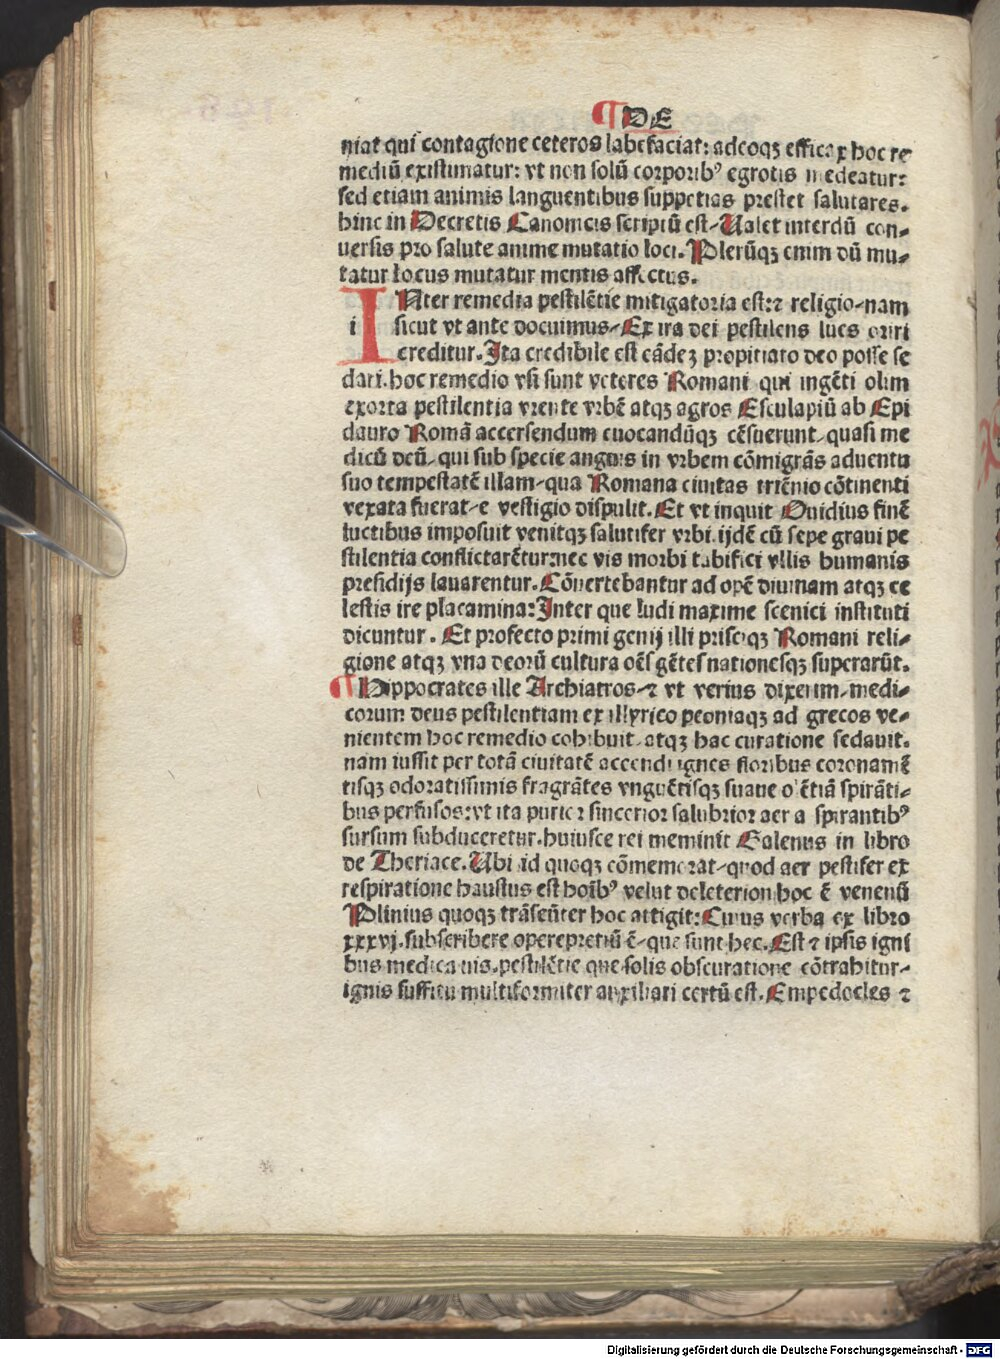 ¶ DE
niat qui contagione ceteros labefaciat: adeoqꝫ efficax hoc re
mediū existimatur: vt non solū corporibꝰ egrotis medeatur:
sed etiam animis languentibus suppetias prestet salutares.
hinc in Decretis Canonicis scriptū est⸗Ualet interdū con⸗
uersis pro salute anime mutatio loci. Plerūqꝫ enim dū mu⸗
tatur locus mutatur mentis affectus.
INter remedia pestilētie mitigatoria est:⁊ religio⸗nam
i sicut vt ante docuimus⸗Ex ira dei pestilens lues oriri
creditur. Ita credibile est cādeꝫ propitiato deo posse se
dari. hoc remedio vsi sunt veteres Romani qui ingēti olim
exorta pestilentia vrente vrbē atqꝫ agros Esculapiū ab Epi
dauro Romā accersendum euocandūqꝫ cēsuerunt⸗quasi me
dicū deū⸗qui sub specie anguis in vrbem cōmigrās aduentu
suo tempestatē illam⸗qua Romana ciuitas triēnio cōtinenti
vexata fuerat⸗e vestigio dispulit. Et vt inquit Ouidius finē
luctibus imposuit venitqꝫ salutifer vrbi. ijdē cū sepe graui pe
stilentia conflictarētur:nec vis morbi tabifici vllis humanis
presidijs lauarentur. Cōuertebantur ad opē diuinam atqꝫ ce
lestis ire placamina: Inter que ludi maxime scenici instituti
dicuntur. Et profecto primi genij illi prisciqꝫ Romani reli⸗
gione atqꝫ vna deorū cultura oēs gētes nationesqꝫ superarūt.
¶ Hippocrates ille Archiatros⸗⁊ vt verius dixerim⸗medi⸗
corum deus pestilentiam ex illyrico peoniaqꝫ ad grecos ve⸗
nientem hoc remedio cohibuit⸗atqꝫ hac curatione sedauit.
nam iussit per totā ciuitatē accendi ignes floribus coronamē
tisqꝫ odoratissimis fragrātes vnguētisqꝫ suaue olētiā spirāti⸗
bus perfusos:vt ita purior sincerior salubrior aer a spirantibꝰ
sursum subduceretur. huiusce rei meminit Galenus in libro
de Theriace. Ubi id quoqꝫ cōmemorat⸗quod aer pestifer ex
respiratione haustus est hoībꝰ velut deleterion hoc ē venenū
Plinius quoqꝫ trāseūter hoc attigit: Cuius verba ex libro
xxxvj. subscribere operepretiū ē⸗que sunt hec. Est ⁊ ipsis igni
bus medica uis. pestilētie que solis obscuratione cōtrahitur⸗
ignis suffitu multiformiter auxiliari certū est. Empedocles ⁊
Digitalisierung gefördert durch die Deutsche Forschungsgemeinschaft - DFG